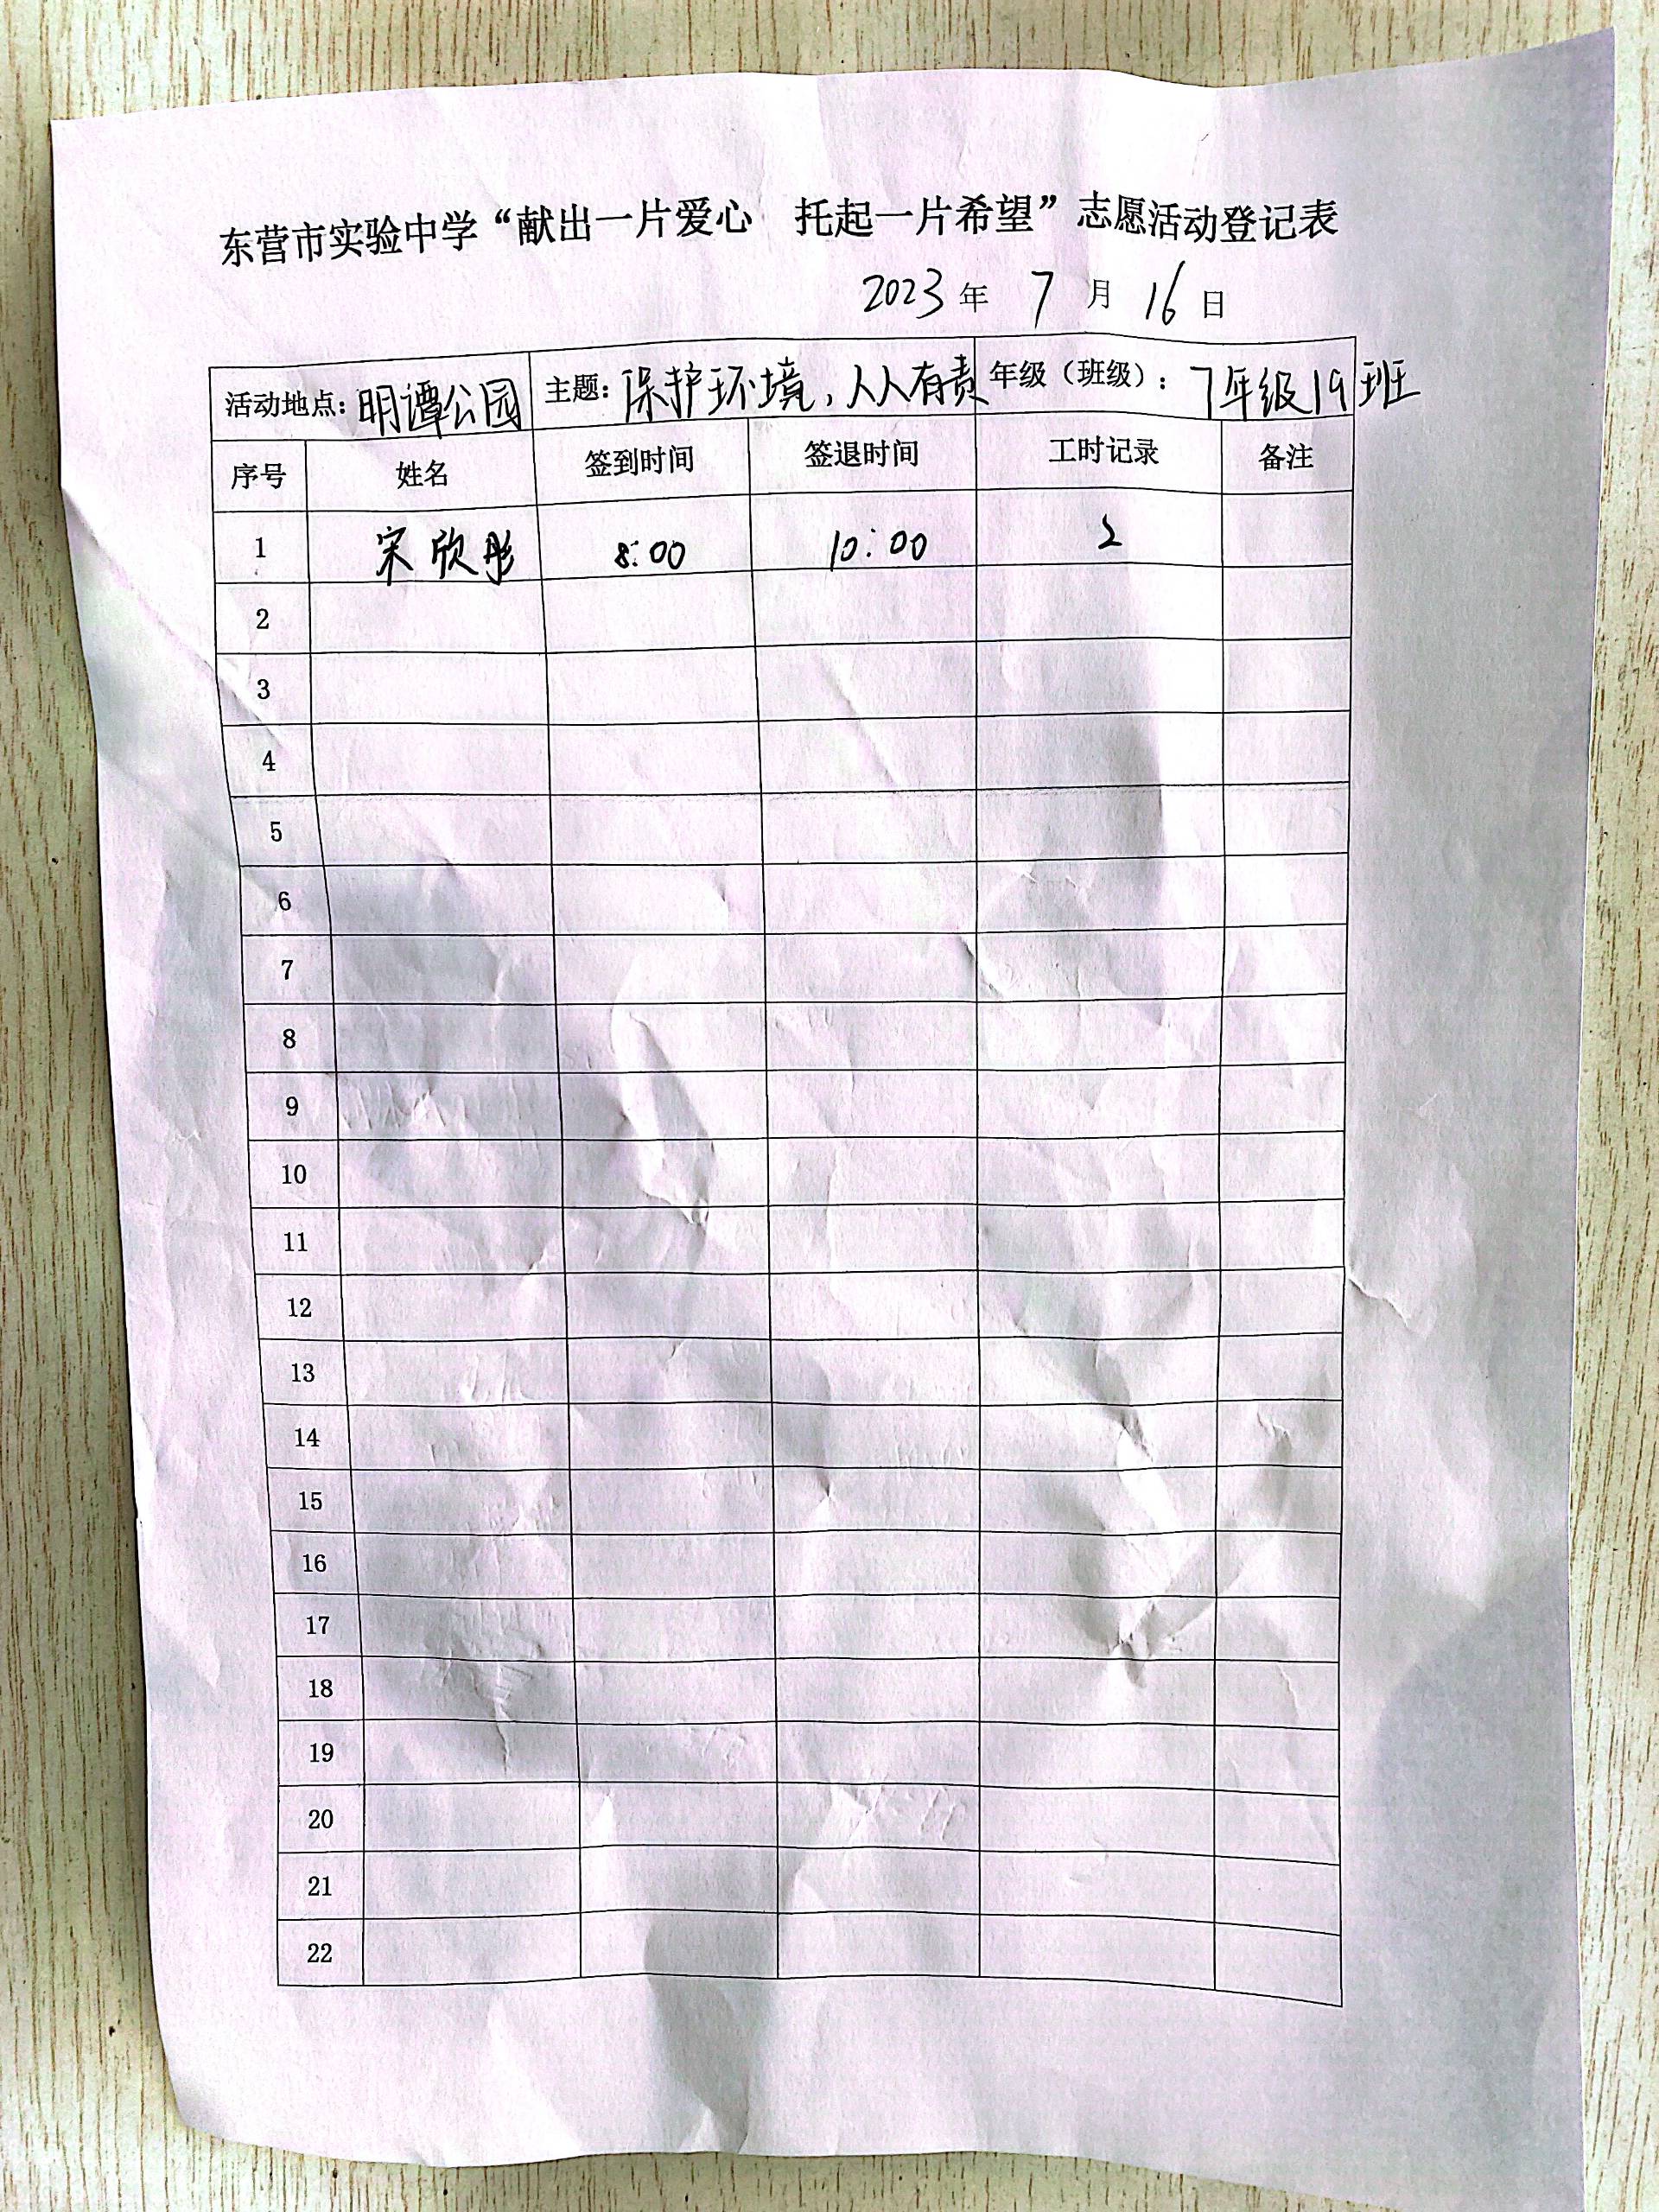 东营市实验中学“献出一片爱心 托起一片希望”志愿活动登记表
2023年 7月 16日
活动地点：明潭公园 主题：保护环境，人人有责 年级（班级）：7年级19班
序号 姓名 签到时间 签退时间 工时记录 备注
1 宋欣彤 8:00 10:00 2
2
3
4
5
6
7
8
9
10
11
12
13
14
15
16
17
18
19
20
21
22